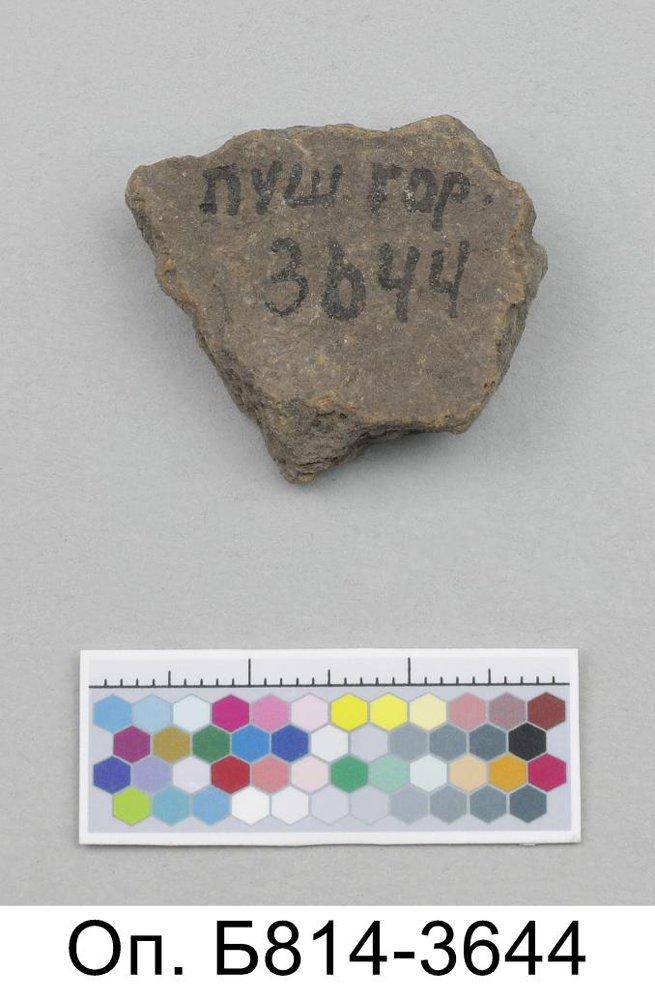 пуш гор.
3644
Оп. Б814-3644